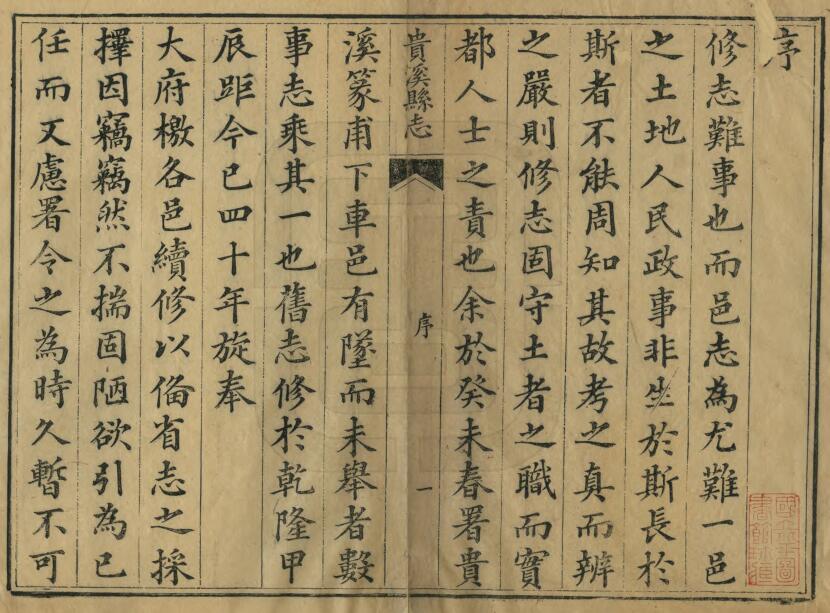 序
修志難事也而邑志為尤難一邑
之土地人民政事非生於斯長於
斯者不能周知其故考之真而辨
之嚴則修志固守土者之職而實
都人士之責也余於癸未春署貴
貴溪縣志
序
一
溪篆甫下車邑有墜而未舉者數
事志乘其一也舊志修於乾隆甲
辰距今已四十年旋奉
大府檄各邑續修以備省志之採
擇因竊竊然不揣固陋欲引為已
任而又慮署令之為時久暫不可